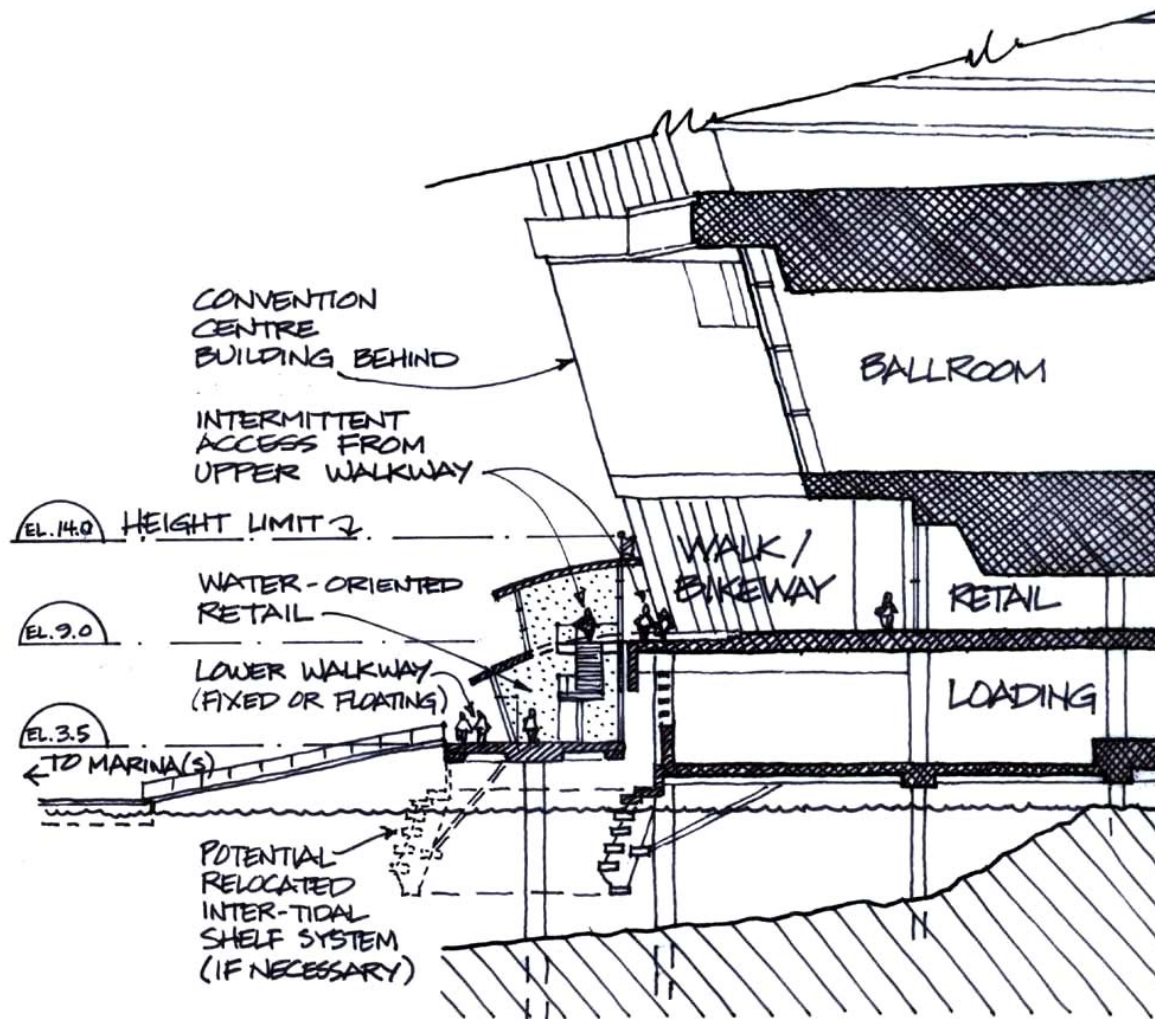 CONVENTION
CENTRE
BUILDING BEHIND
BALLROOM
INTERMITTENT
ACCESS FROM
UPPER WALKWAY
EL. 14.0 HEIGHT LIMIT
WALK/
BIKEWAY
WATER-ORIENTED
RETAIL
RETAIL
EL. 9.0
LOWER WALKWAY
(FIXED OR FLOATING)
LOADING
EL. 3.5
TO MARINA(S)
POTENTIAL
RELOCATED
INTER-TIDAL
SHELF SYSTEM
(IF NECESSARY)